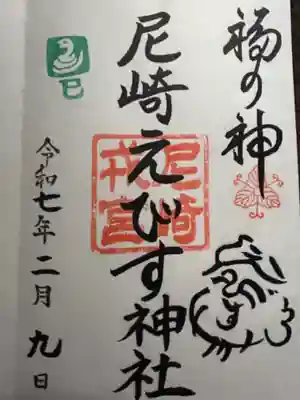 福の神
尼崎えびす神社
尼崎
戎宮
令和七年二月九日
巳